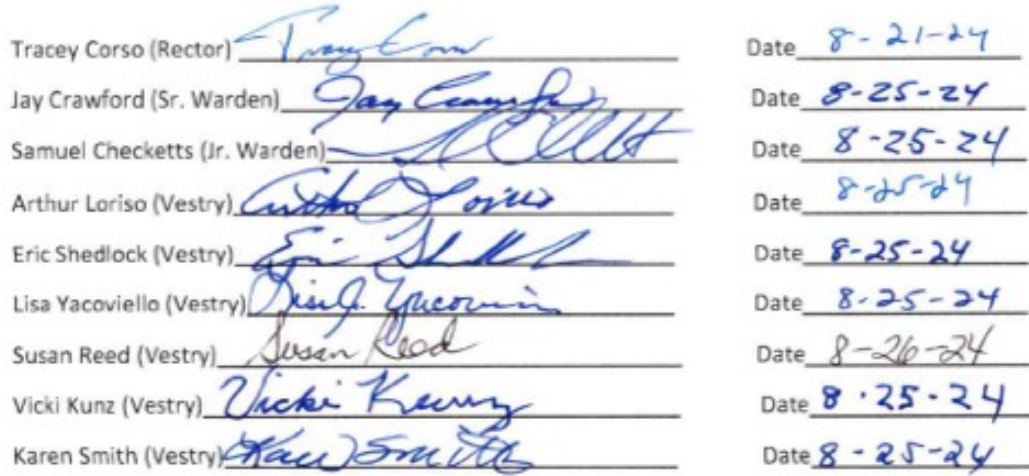 Tracey Corso (Rector) Tracey Corso Date 8-21-24
Jay Crawford (Sr. Warden) Jay Crawford Date 8-25-24
Samuel Checketts (Jr. Warden) Date 8-25-24
Arthur Loriso (Vestry) Arthur Loriso Date 8-25-24
Eric Shedlock (Vestry) Eric Shedlock Date 8-25-24
Lisa Yacoviello (Vestry) Lisa J. Yacoviello Date 8-25-24
Susan Reed (Vestry) Susan Reed Date 8-26-24
Vicki Kunz (Vestry) Vicki Kunz Date 8-25-24
Karen Smith (Vestry) Karen Smith Date 8-25-24